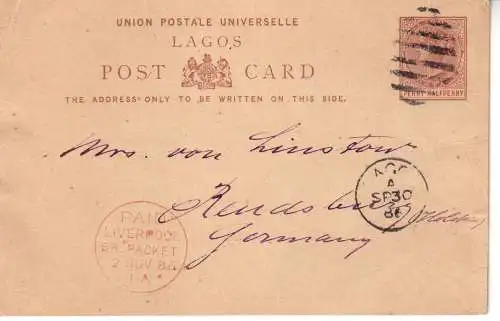 UNION POSTALE UNIVERSELLE
LAGOS
POST CARD
THE ADDRESS ONLY TO BE WRITTEN ON THIS SIDE.
PENNY HALFPENNY
Mrs. von Linstow
Rendsburg
(Holstein)
Germany
A
SP30
86
PAID
LIVERPOOL
BR. PACKET
2 NOV 86